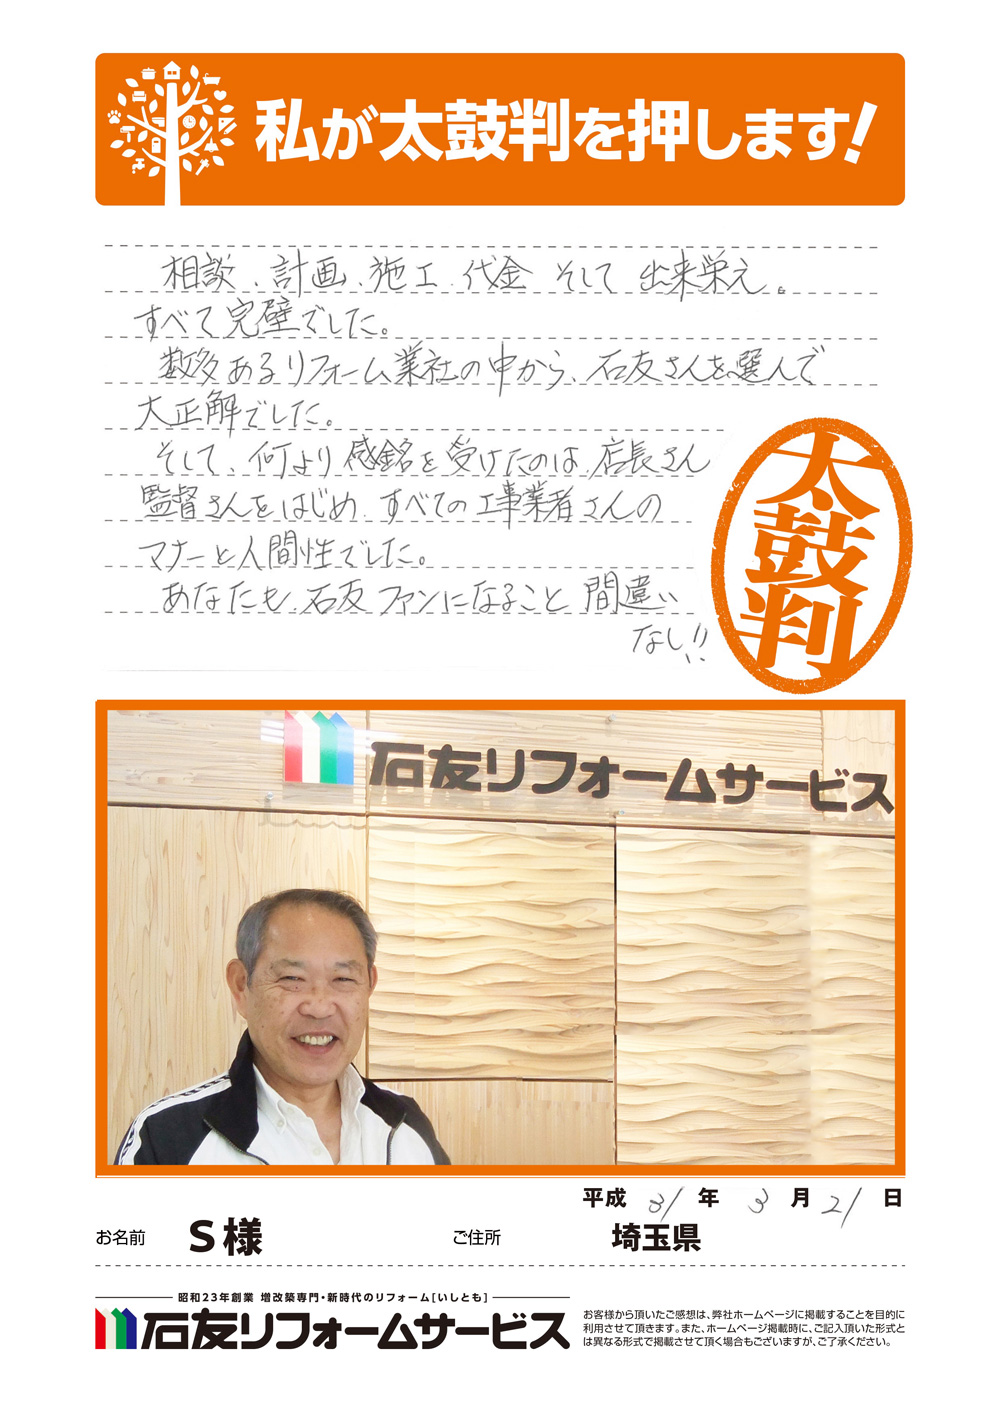 私が太鼓判を押します!
相談、計画、施工、代金 そして 出来栄え。
すべて完璧でした。
数多あるリフォーム業社の中から、石友さんを選んで
大正解でした。
そして、何より感銘を受けたのは、店長さん
監督さんをはじめ、すべての工事業者さんの
マナーと人間性でした。
あなたも、石友ファンになること間違い
なし!!
太鼓判
石友リフォームサービス
平成 31 年 3 月 21 日
お名前 S様 ご住所 埼玉県
昭和23年創業 増改築専門・新時代のリフォーム[いしとも]
石友リフォームサービス
お客様から頂いたご感想は、弊社ホームページに掲載することを目的に
利用させて頂きます。また、ホームページ掲載時に、ご記入頂いた形式と
は異なる形式で掲載させて頂く場合もございますが、ご了承ください。